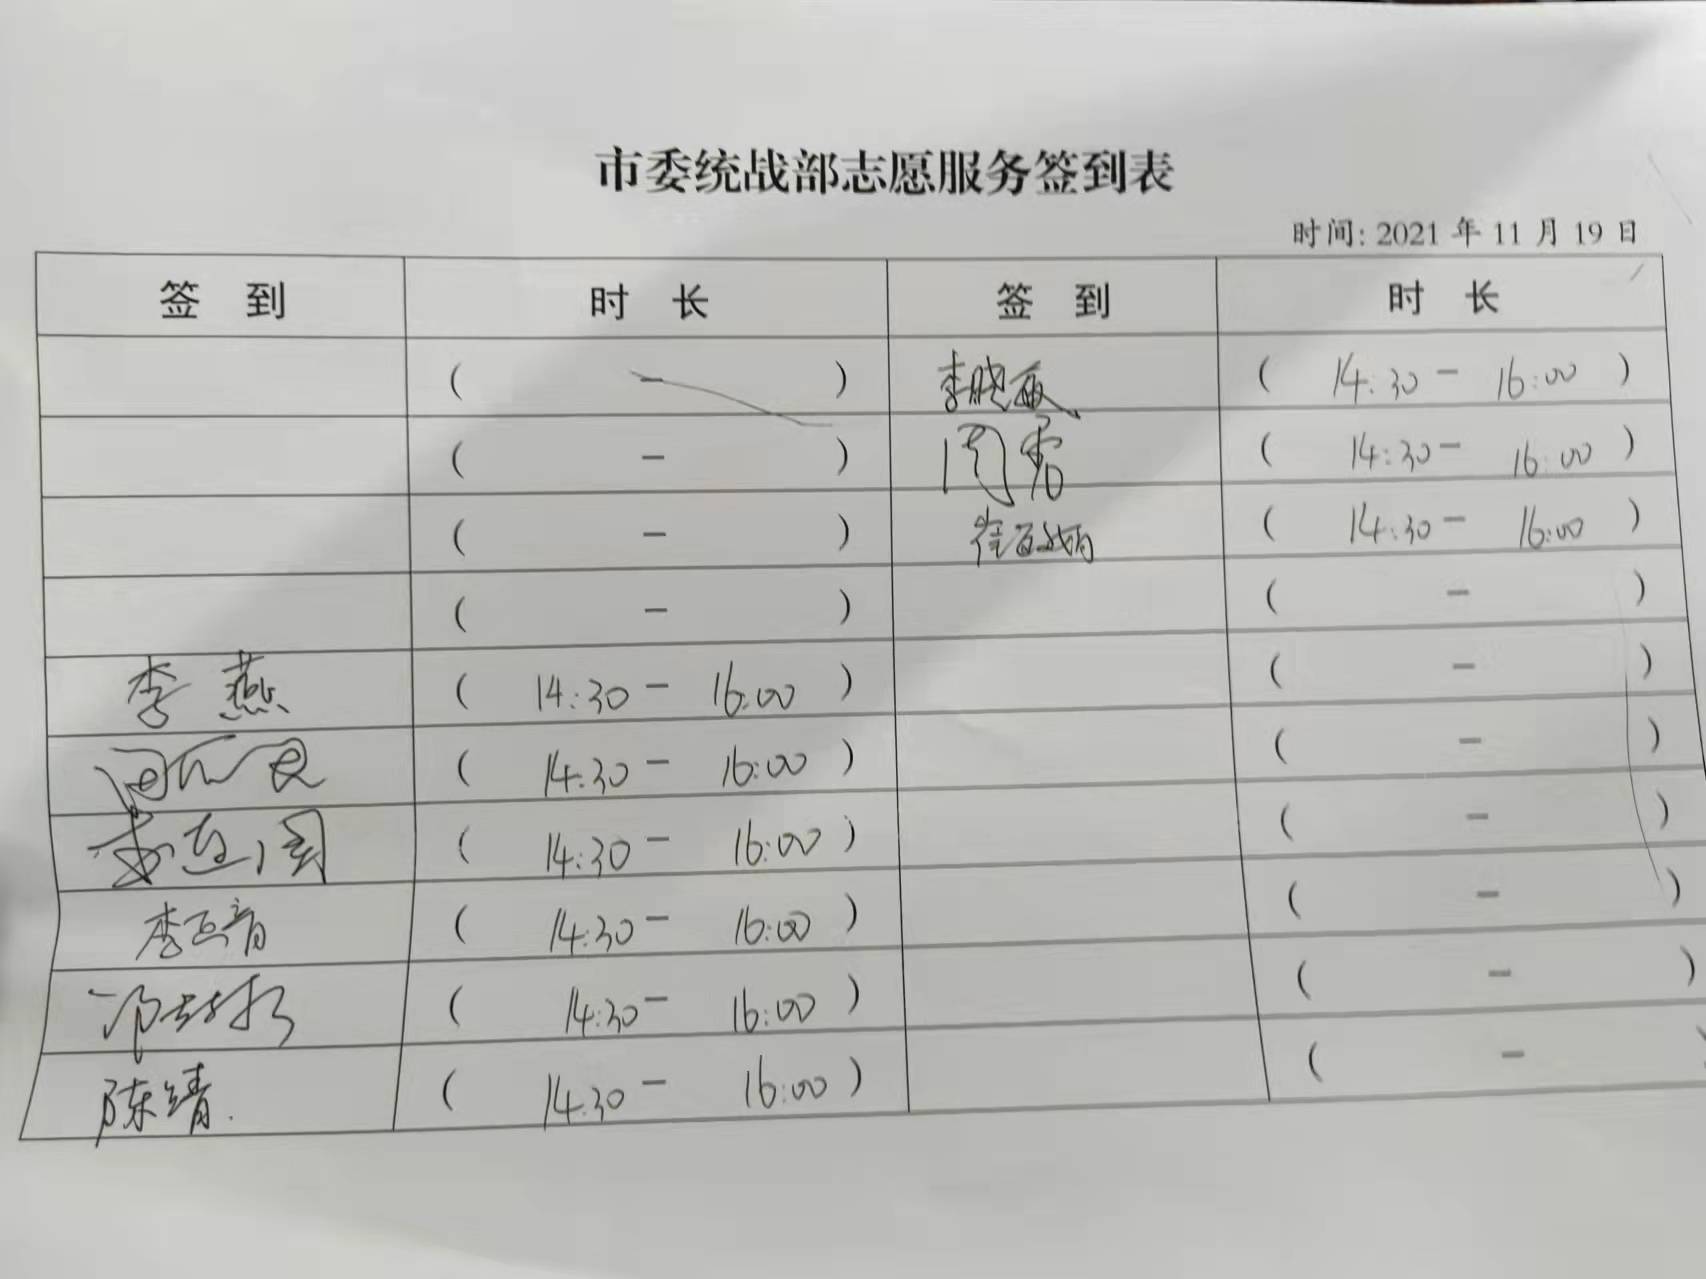 市委统战部志愿服务签到表
时间: 2021 年 11 月 19 日
签 到 时 长 签 到 时 长
( - ) 李晓 ( 14:30 - 16:00 )
( - ) 周 ( 14:30 - 16:00 )
( - ) ( 14:30 - 16:00 )
( - ) ( - )
李燕 ( 14:30 - 16:00 ) ( - )
( 14:30 - 16:00 ) ( - )
( 14:30 - 16:00 ) ( - )
李 ( 14:30 - 16:00 ) ( - )
( 14:30 - 16:00 ) ( - )
陈靖. ( 14:30 - 16:00 ) ( -